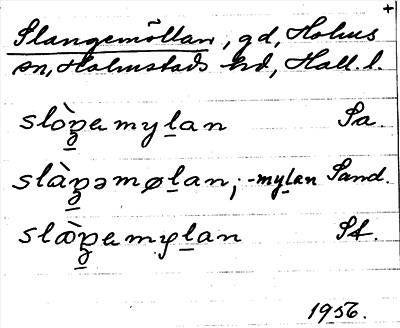 +
Slangemöllan, gd, Holms
sn, Halmstads hd, Hall. l.
slòŋ̲a my l̲an Sa.
slàŋ̲ə mø l̲an; -myl̲an Sand.
slæ̀ŋ̲a my l̲an St.
1956.